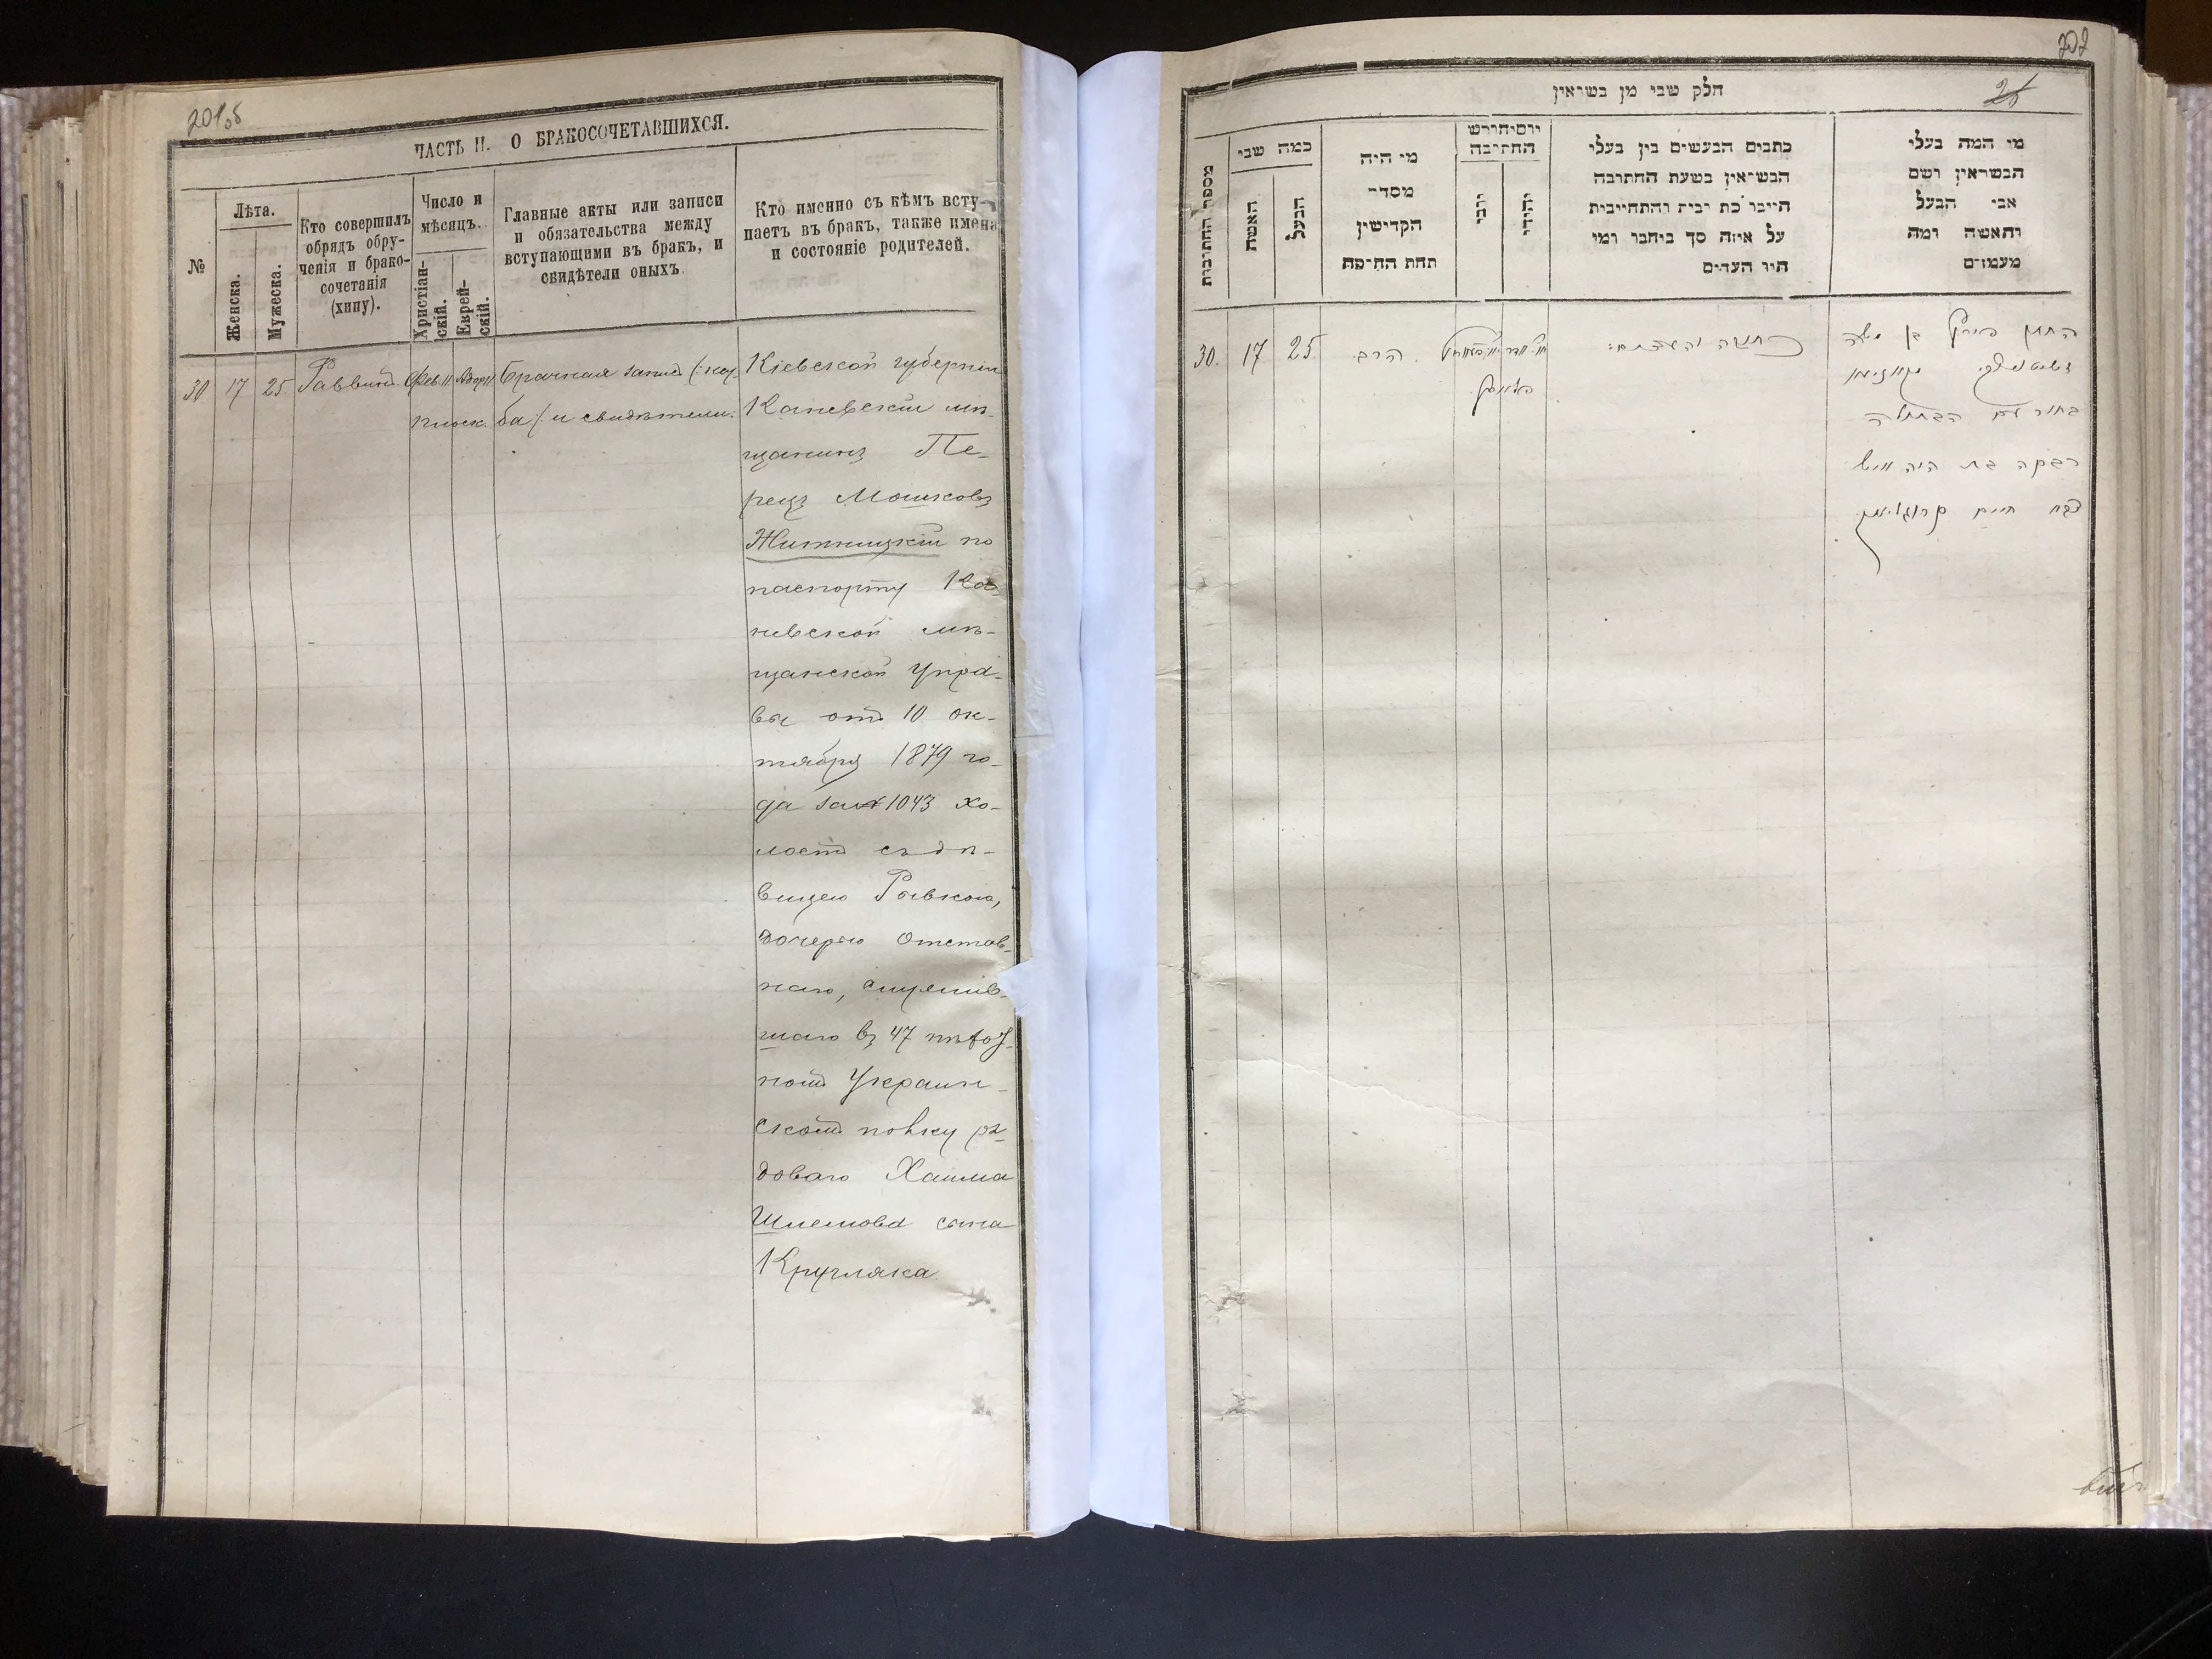 201об
ЧАСТЬ II. О БРАКОСОЧЕТАВШИХСЯ.
№
Лѣта.
Женска.
Мужеска.
Кто совершилъ
обрядъ обру-
ченія и брако-
сочетанія
(хипу).
Число и
мѣсяцъ.
Христіан-
скій.
Еврей-
скій.
Главные акты или записи
и обязательства между
вступающими въ бракъ, и
свидѣтели оныхъ.
Кто именно съ кѣмъ всту-
паетъ въ бракъ, также имена
и состояніе родителей.
30 17 25. Раввинъ. Фев. 11 Адоръ 11
Брачная запись (:кту-
ба:) и свидѣтели.
Кіевской губерніи
Каневскій мѣ-
щанинъ Пе-
рецъ Мошковъ
Житницкій по
паспорту Ка-
невской мѣ-
щанской Упра-
вы отъ 10 ок-
тября 1879 го-
да за № 1043 хо-
лостъ съ дѣ-
вицею Рывкою,
дочерью Отстав-
наго, служив-
шаго въ 47 пѣхот-
номъ Украин-
скомъ полку ря-
доваго Хаима
Шлемова сына
Кругляка.
202
26
חלק שני מן נשואין
מספר החתונות
כמה שני
האשה
הבעל
מי היה
מסדר
הקדישין
תחת החופה
יום וחודש
החתונה
יוני
יהודי
כתבים הנעשים בין בעלי
הנשואין בשעת החתונה
על איזה סך ניחבר ומי
היו העדים
מי המה בעלי
הנשואין ושם
אבי הבעל
והאשה ומה
מעמדם
30. 17 25. הרב.
החתן פירץ בן משה
בחור עם הבתולה
רבקה בת
חיים קרוגליאק